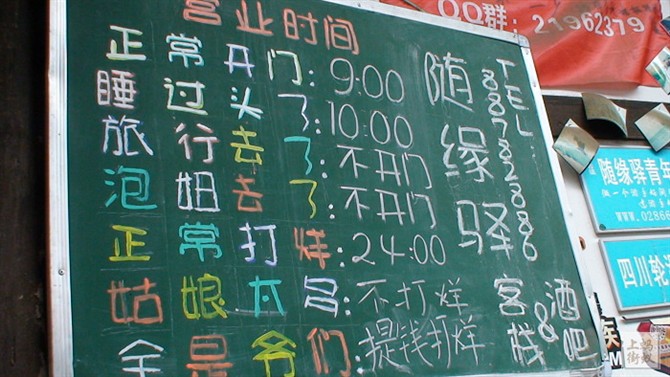 QQ群：21962379
营业时间
正常开门：9:00
睡过头了：10:00
旅行去了：不开门
泡妞去了：不开门
正常打烊：24:00
姑娘太多：不打烊
全是爷们：提钱打烊
随缘驿
客栈&酒吧
TEL
随缘驿青年
WWW.
四川轮